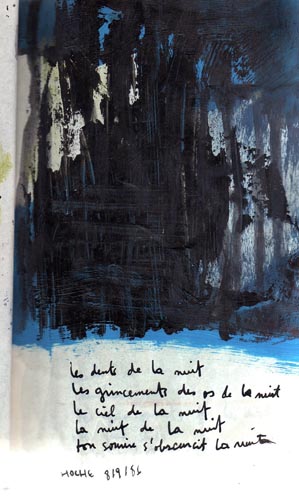 les dents de la nuit
les grincements des os de la nuit
le ciel de la nuit
la nuit de la nuit
ton sourire s'obscurcit la nuit
HOCHE 8/9/86